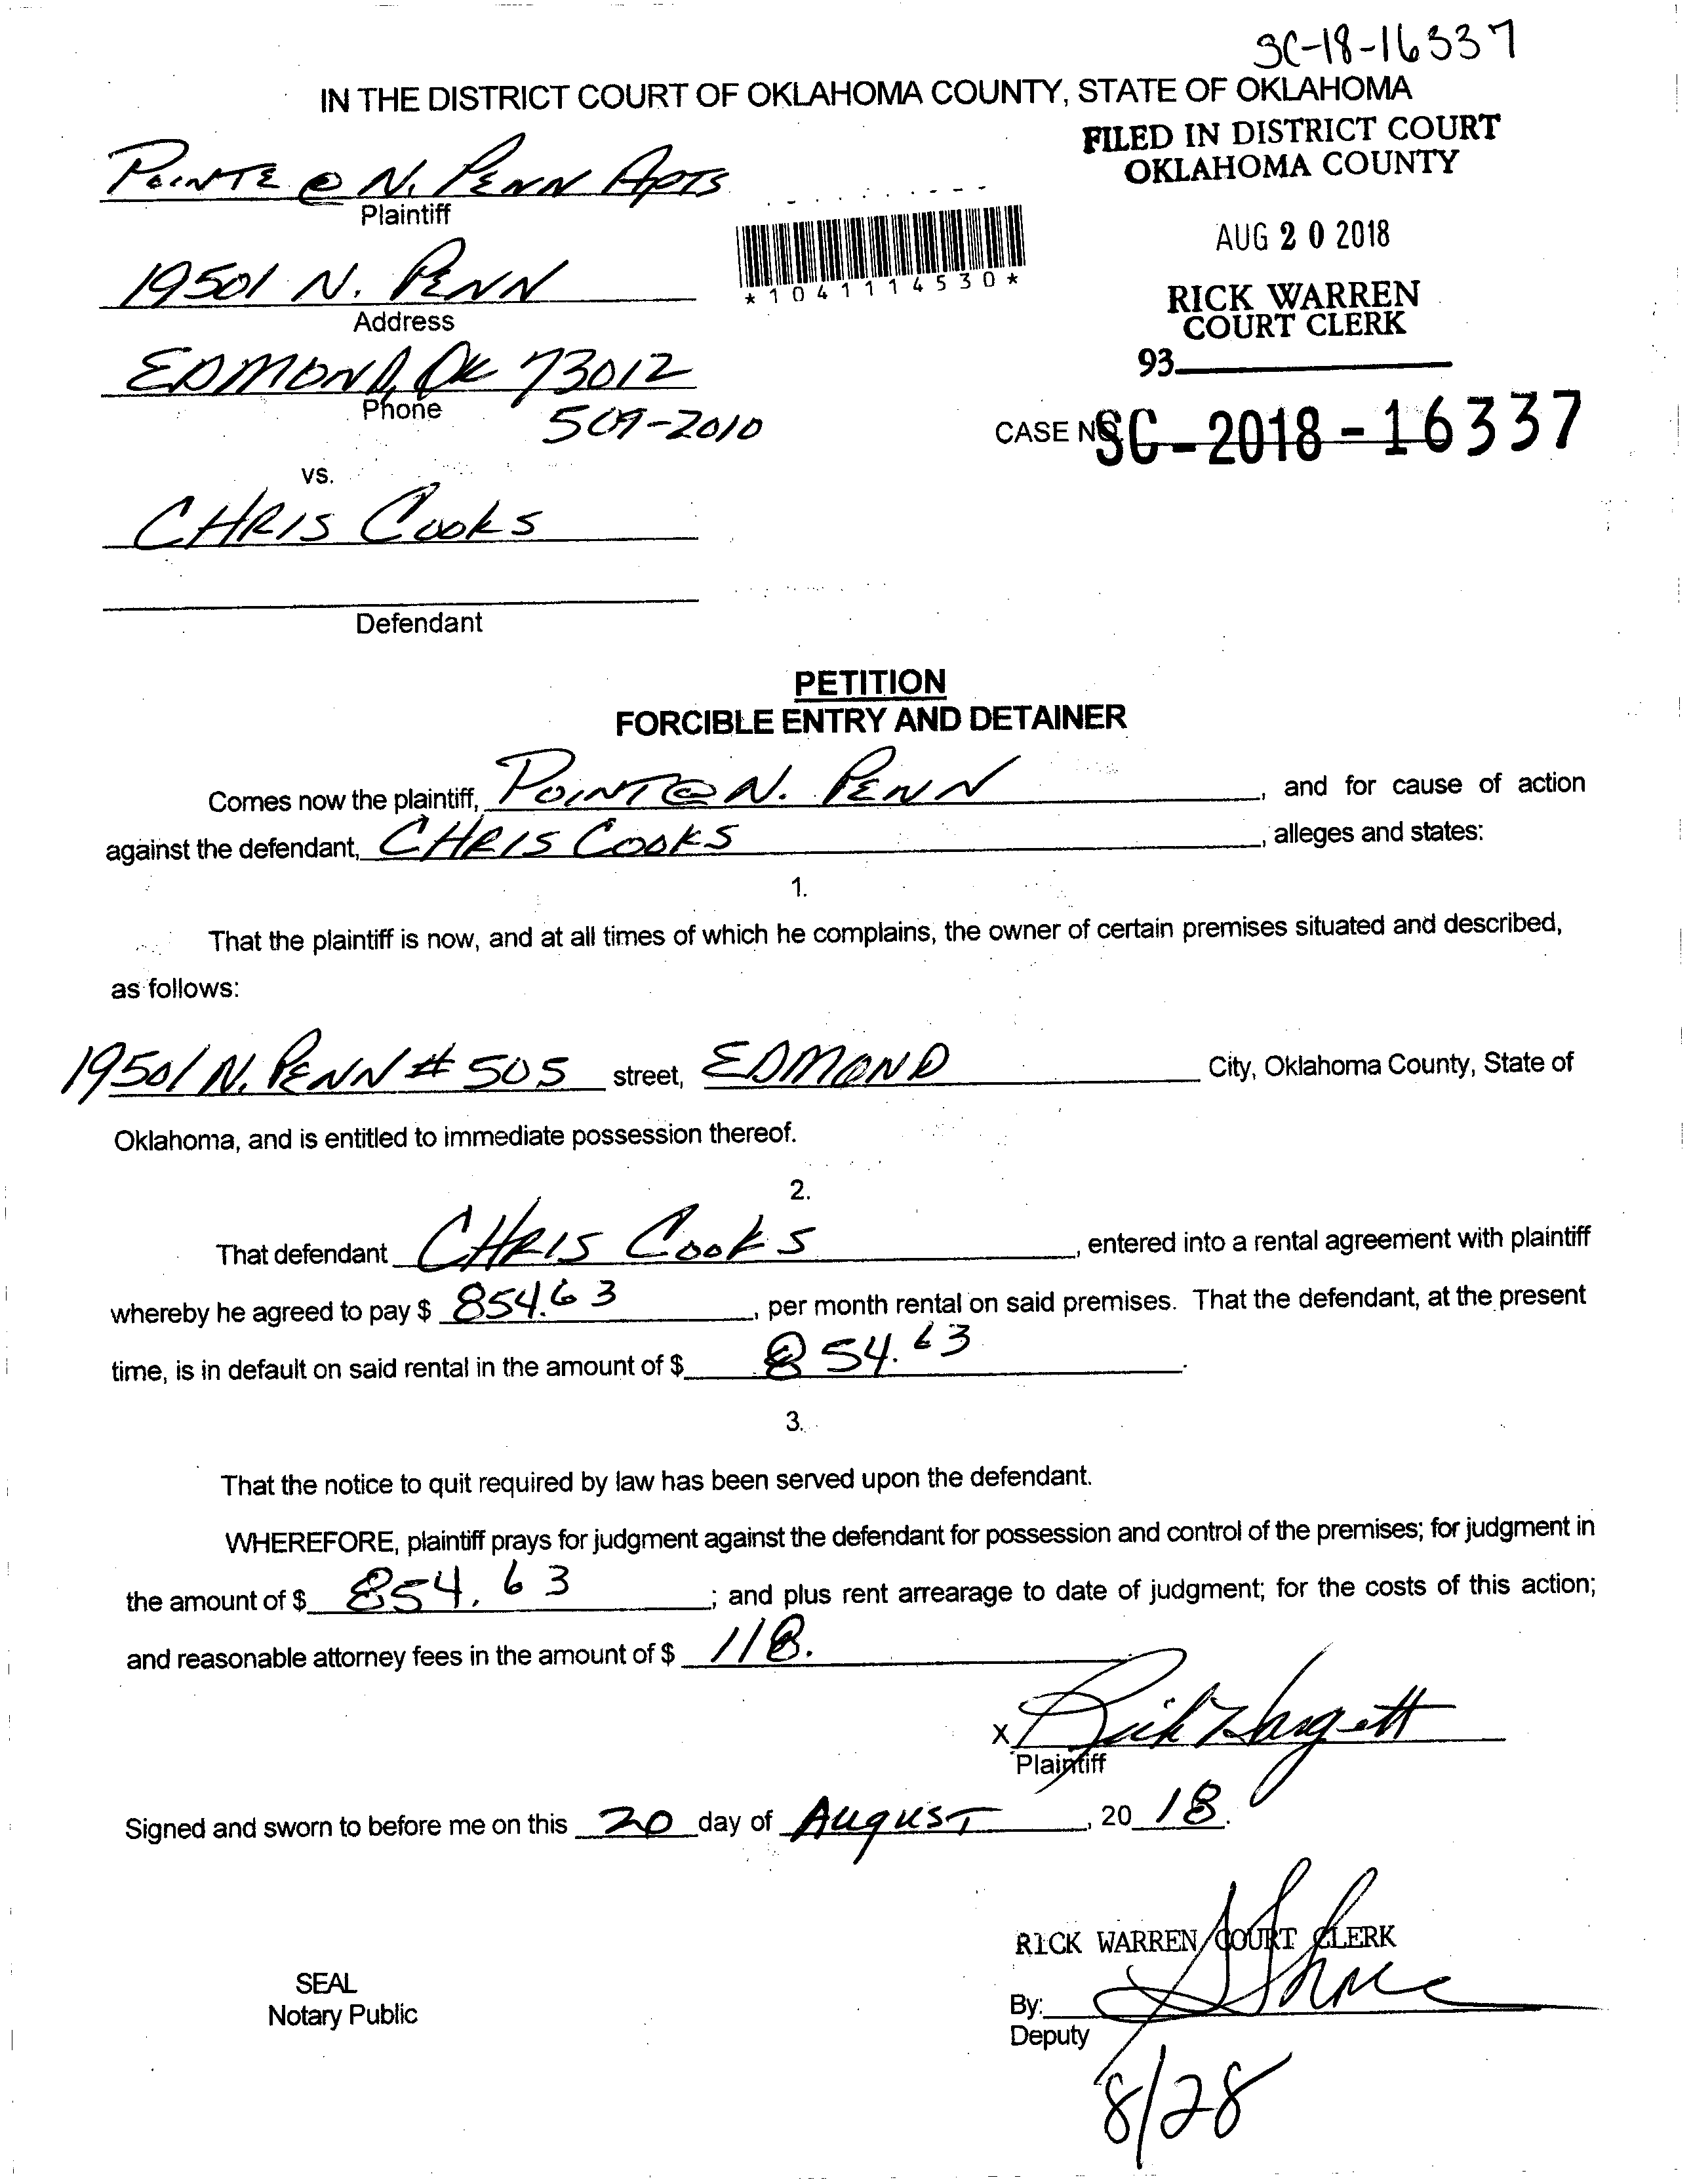 SC-18-16337
IN THE DISTRICT COURT OF OKLAHOMA COUNTY, STATE OF OKLAHOMA
FILED IN DISTRICT COURT
OKLAHOMA COUNTY
POINTE @ N. PENN APTS
Plaintiff
*1041114530*
AUG 20 2018
19501 N. PENN
Address
RICK WARREN
COURT CLERK
93
EDMOND, OK 73012
Phone
509-2010
CASE NO. SC-2018-16337
vs.
CHRIS COOKS
Defendant
PETITION
FORCIBLE ENTRY AND DETAINER
Comes now the plaintiff, POINT @ N. PENN, and for cause of action
against the defendant, CHRIS COOKS, alleges and states:
1.
That the plaintiff is now, and at all times of which he complains, the owner of certain premises situated and described,
as follows:
19501 N. PENN # 505 street, EDMOND City, Oklahoma County, State of
Oklahoma, and is entitled to immediate possession thereof.
2.
That defendant CHRIS COOKS, entered into a rental agreement with plaintiff
whereby he agreed to pay $ 854.63, per month rental on said premises. That the defendant, at the present
time, is in default on said rental in the amount of $ 854.63.
3.
That the notice to quit required by law has been served upon the defendant.
WHEREFORE, plaintiff prays for judgment against the defendant for possession and control of the premises; for judgment in
the amount of $ 854.63; and plus rent arrearage to date of judgment; for the costs of this action;
and reasonable attorney fees in the amount of $ 118.
X Rick Hargett
Plaintiff
Signed and sworn to before me on this 20 day of AUGUST, 20 18.
RICK WARREN COURT CLERK
SEAL
Notary Public
By:
Deputy
8/28